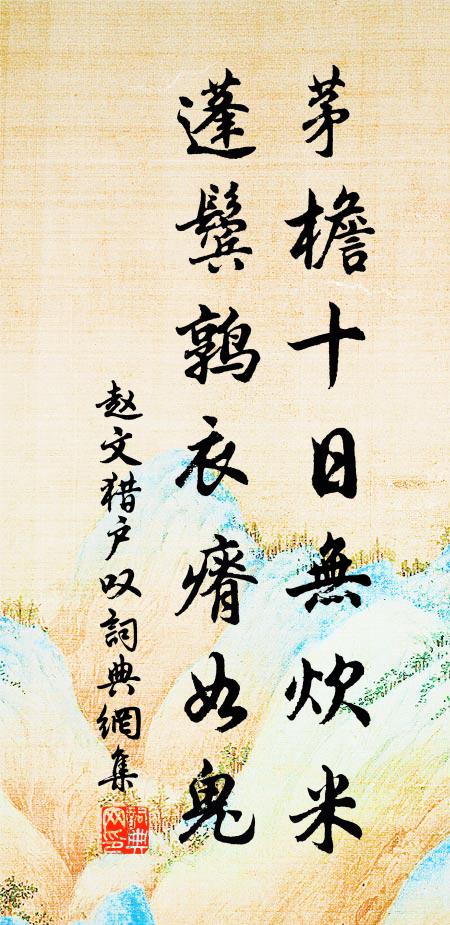 茅檐十日無炊米
蓬鬢鶉衣瘠如鬼
赵文猎户叹詞典網集